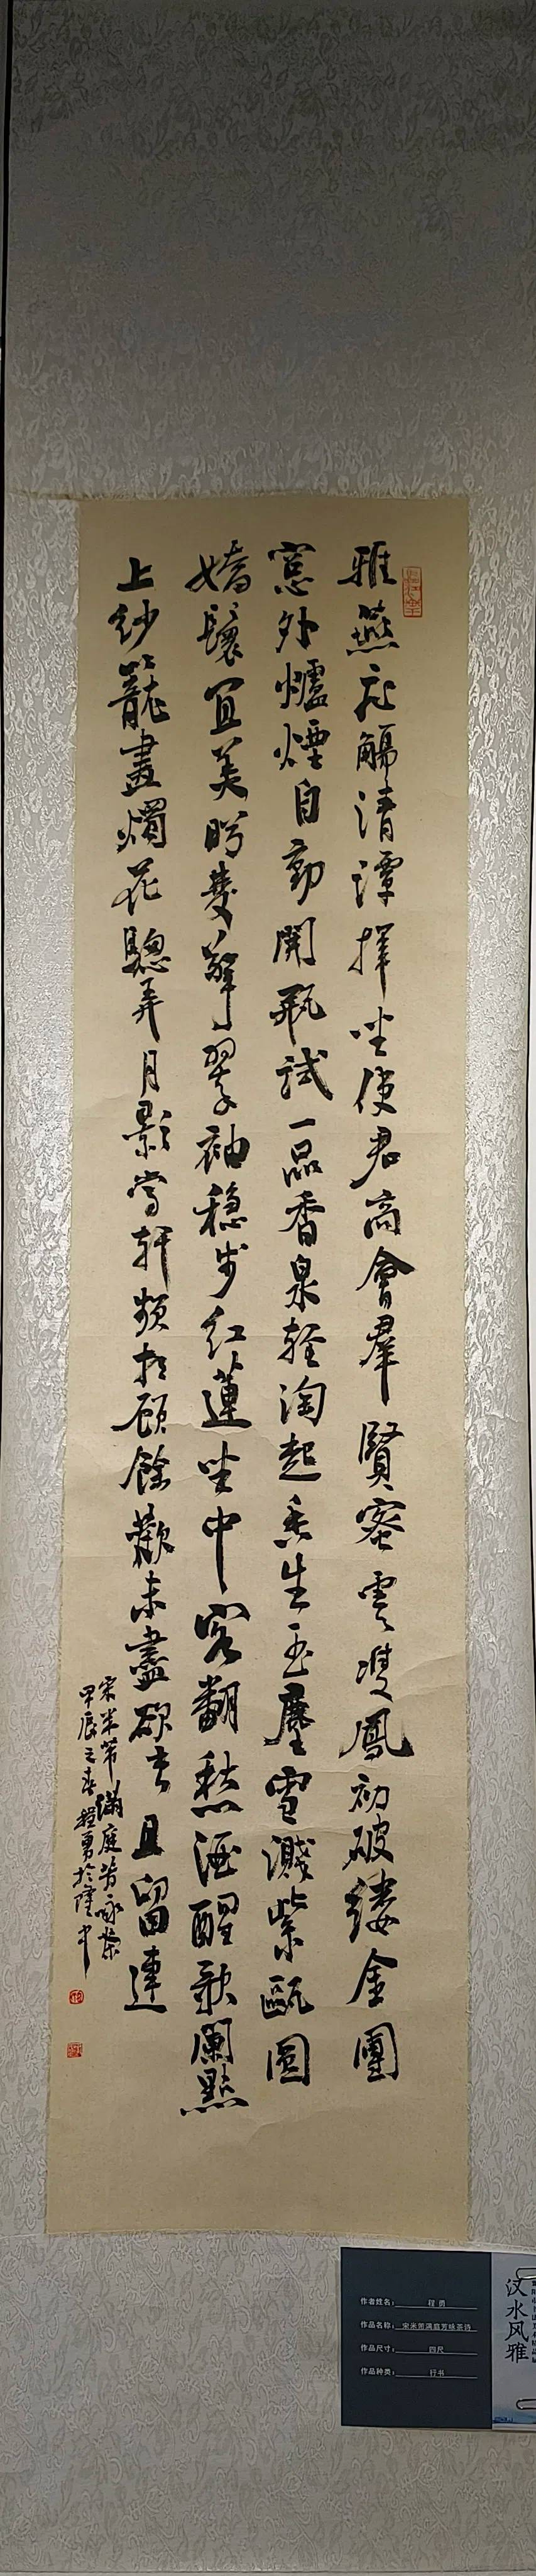 雅燕飛觴清譚揮坐使君高會羣賢蜜雲雙鳳初破縷金團
窓外爐煙自動開瓶試一品香泉輕淘起香生玉塵雪濺紫甌圓
嬌鬟宜美盻雙擎翠袖穩步紅蓮坐中客翻愁酒醒歌闌點
上紗籠畫燭花驄弄月影當軒頻相顧餘歡未盡欲去且留連
宋米芾滿庭芳咏茶
甲辰之春程勇於隆中
作者姓名：程勇
作品名称：宋米芾满庭芳咏茶诗
作品尺寸：四尺
作品种类：行书
汉水风雅